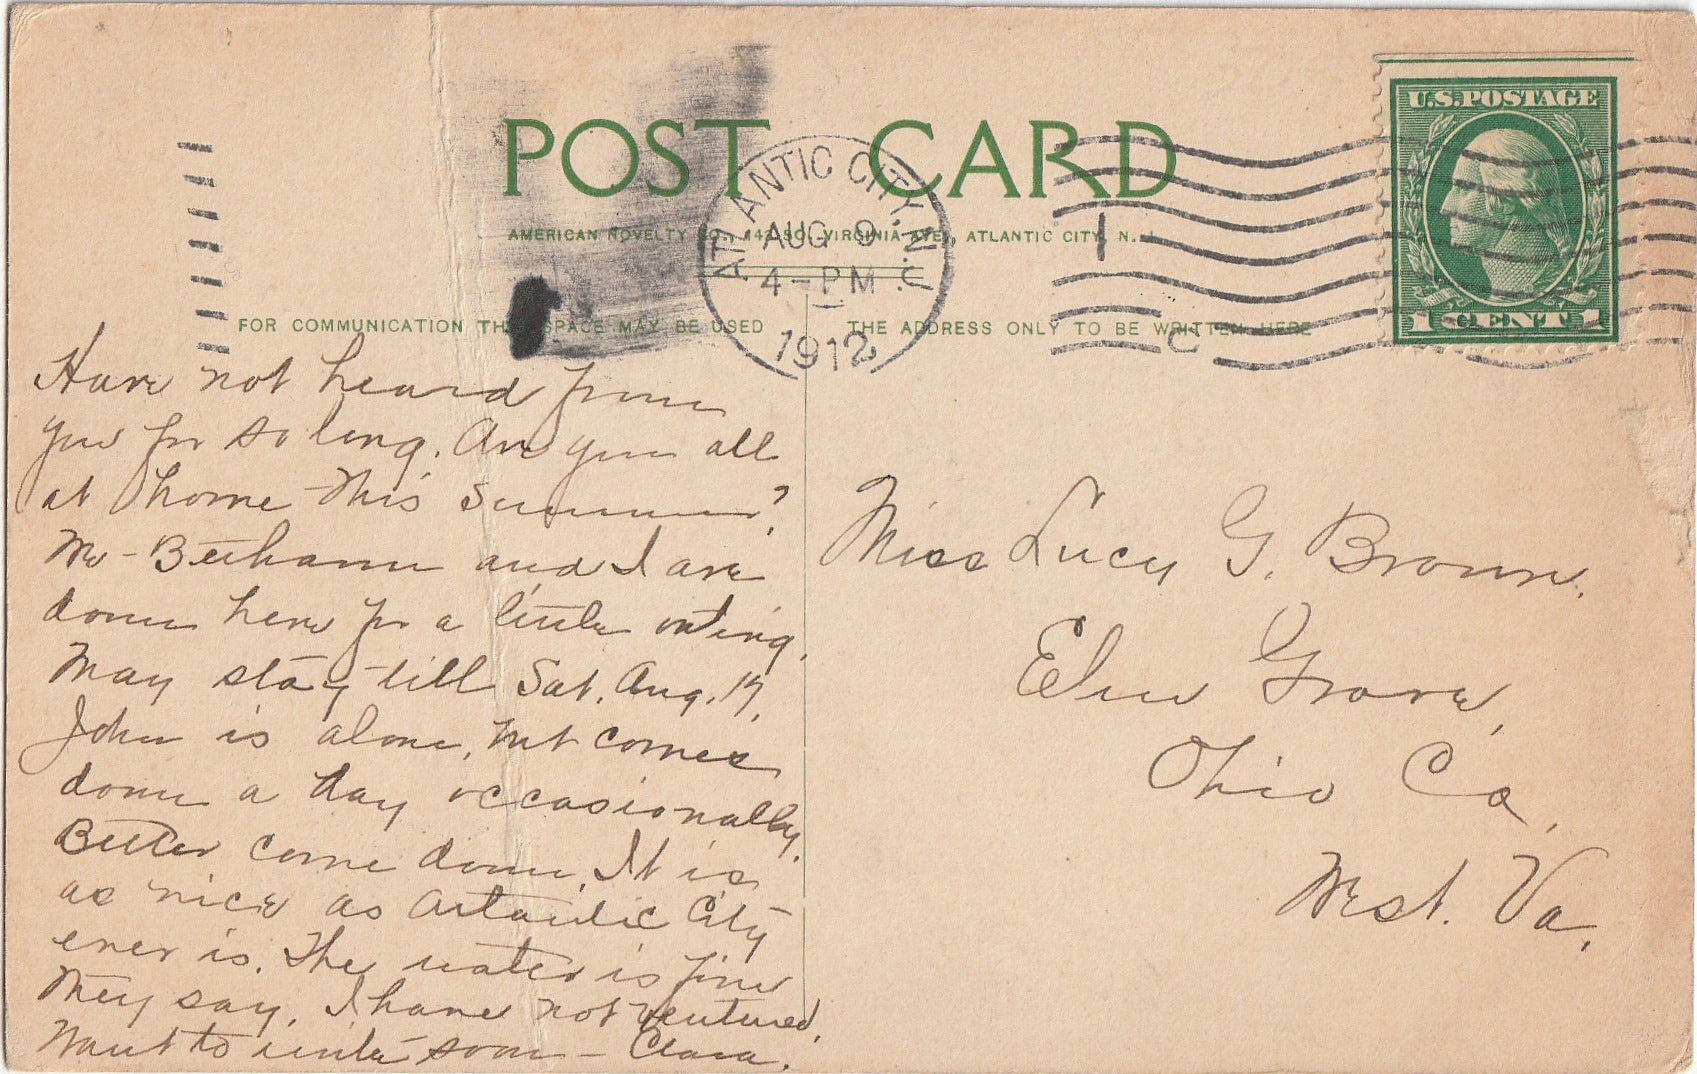 POST CARD
AMERICAN NOVELTY CO., 142 SO. VIRGINIA AVE., ATLANTIC CITY, N. J.
ATLANTIC CITY, N.J.
AUG 9
4-PM
1912
U.S. POSTAGE
1 CENT 1
FOR COMMUNICATION THIS SPACE MAY BE USED
THE ADDRESS ONLY TO BE WRITTEN HERE
Have not heard from
you for so long. Are you all
at home this Summer?
Mr and I are
down here for a little outing.
May stay till Sat. Aug. 17.
John is alone, but comes
down a day occasionally.
Better come down. It is
as nice as Atlantic City
ever is. The water is fine
they say. I have not ventured.
Want to write soon – Clara.
Miss Lucy G. Brown.
Elm Grove,
Ohio Co,
West. Va.